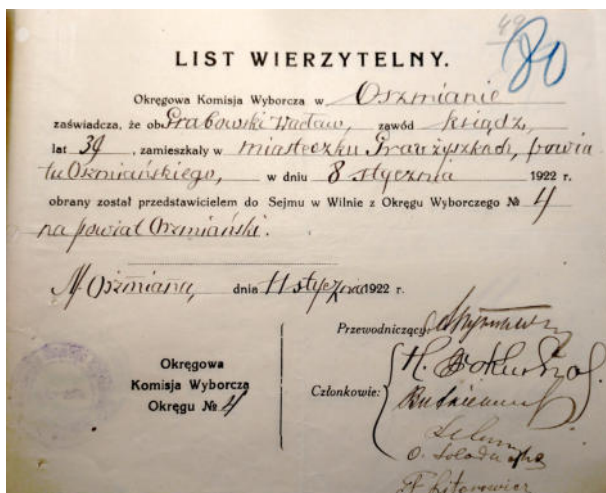 49
80
LIST WIERZYTELNY.
Okręgowa Komisja Wyborcza w Oszmianie
zaświadcza, że ob. Grabowski Wacław, zawód ksiądz,
lat 39, zamieszkały w miasteczku Graużyszkach, powia
tu Oszmiańskiego, w dniu 8 stycznia 1922 r.
obrany został przedstawicielem do Sejmu w Wilnie z Okręgu Wyborczego № 4
na powiat Oszmiański.
M. Oszmiana, dnia 11 stycznia 1922 r.
Przewodniczący:
Okręgowa
Komisja Wyborcza
Okręgu № 4
Członkowie: